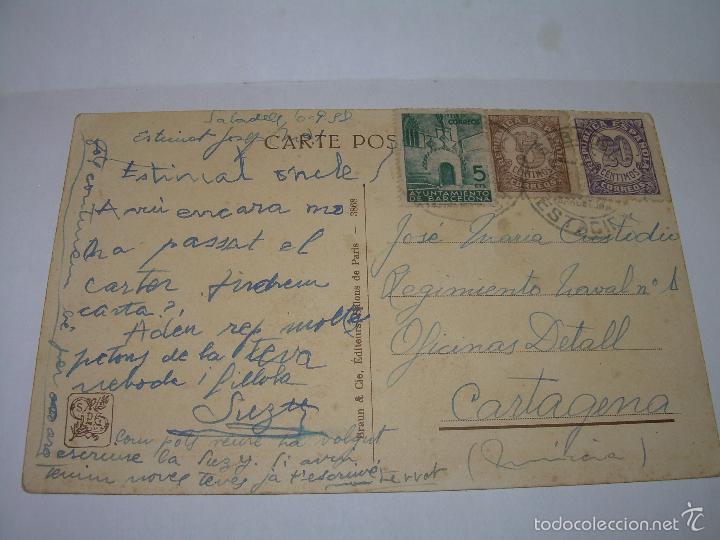 Sabadell 6-9-38
Estimat Josep Mª
CARTE POS
Estimat oncle
Avui encara no
ha passat el
carter tindrem
carta?,
Adéu rep molts
petons de la teva
neboda i fillola
Suzy
Com pots veure ha volgut
escriure la Suzy. Si avui
tenim noves teves ja t'escriuré
tot continua bé per ara
Braun & Cie, Éditeurs, Paris — 3869
CORREOS
5
CTS
AYUNTAMIENTO
DE BARCELONA
REPUBLICA ESPAÑOLA
15
CENTIMOS
CORREOS
REPUBLICA ESPAÑOLA
20
CENTIMOS
CORREOS
José Maria Custodio
Regimiento Naval nº 1
Oficinas Detall
Cartagena
(Murcia)
todocoleccion.net